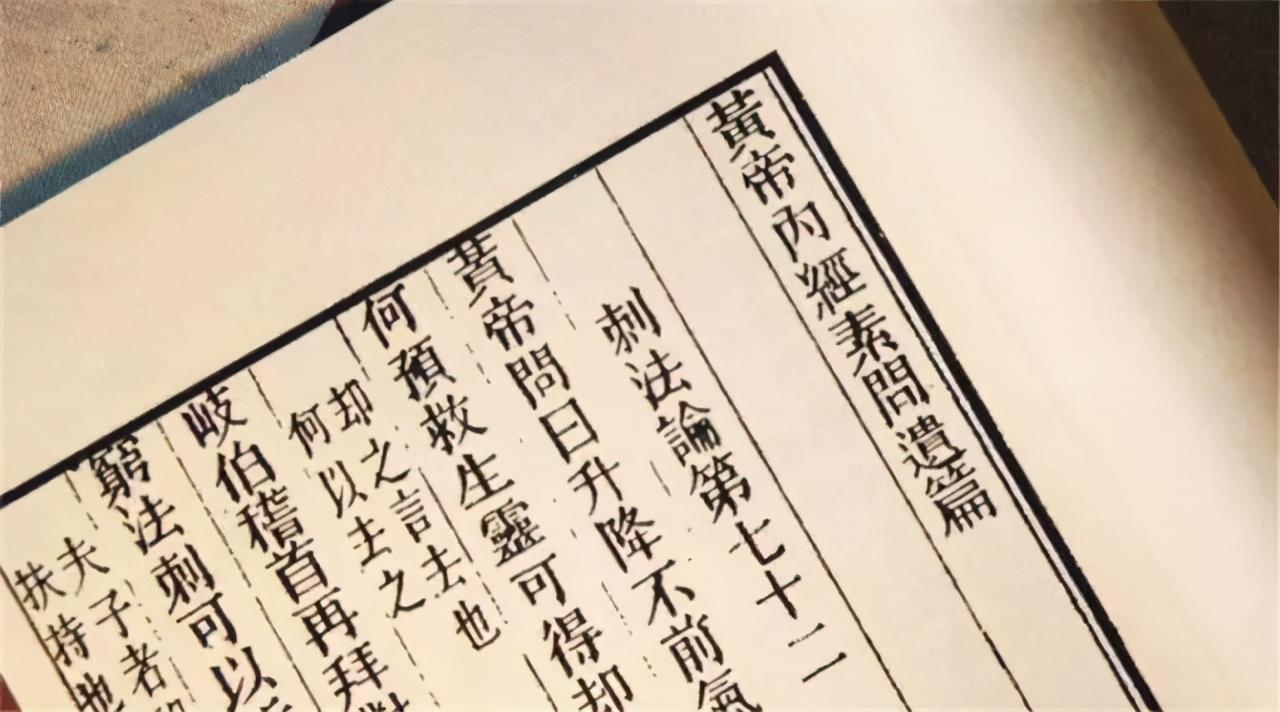 黃帝內經素問遺篇
刺法論第七十二
黃帝問曰升降不前氣
何預救生靈可得却
却之言去也
何以主之
岐伯稽首再拜對
窮法刺可以
夫子者
扶持也